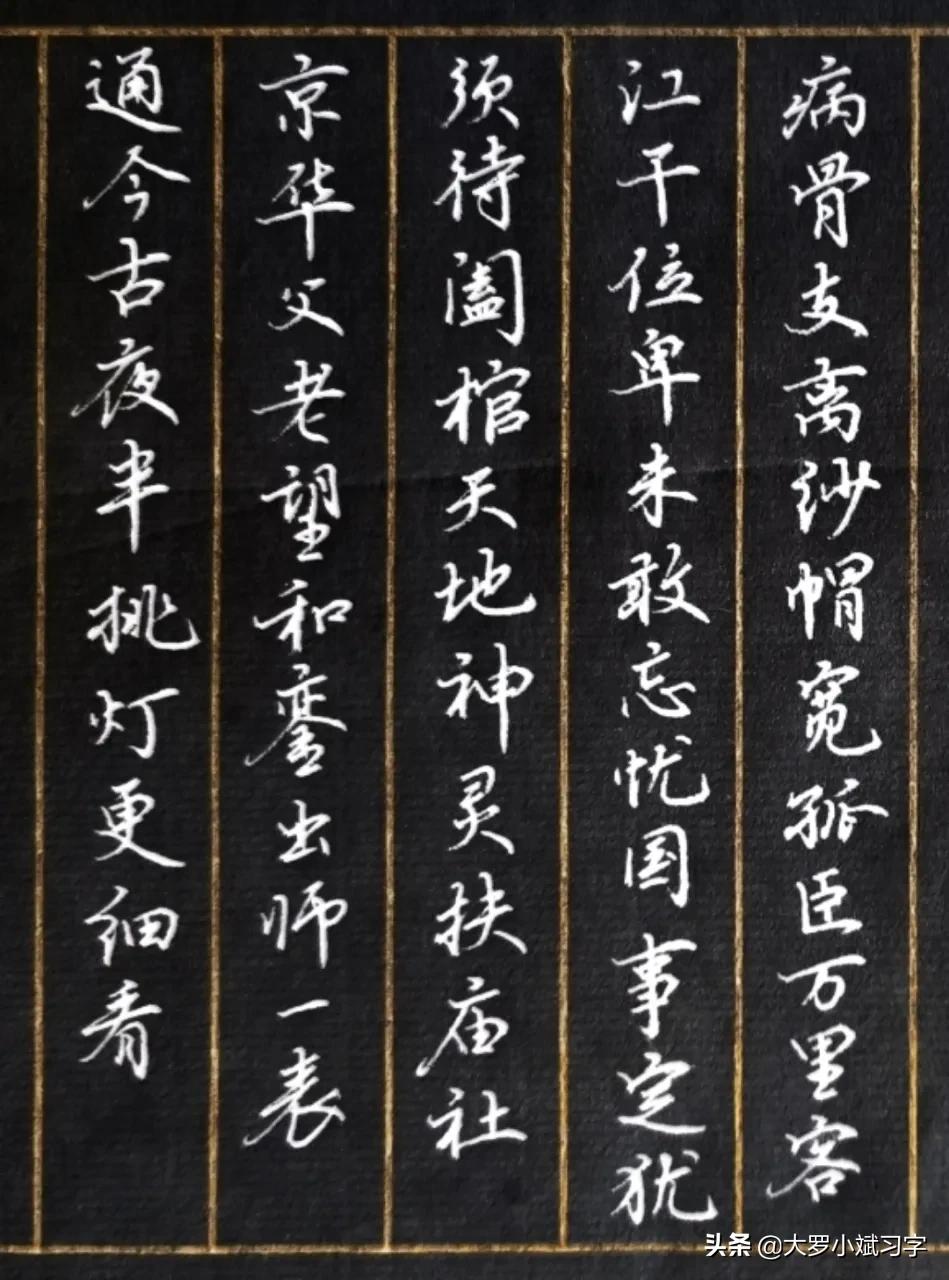 病骨支离纱帽宽孤臣万里客
江干位卑未敢忘忧国事定犹
须待阖棺天地神灵扶庙社
京华父老望和銮出师一表
通今古夜半挑灯更细看
头条 @大罗小斌习字